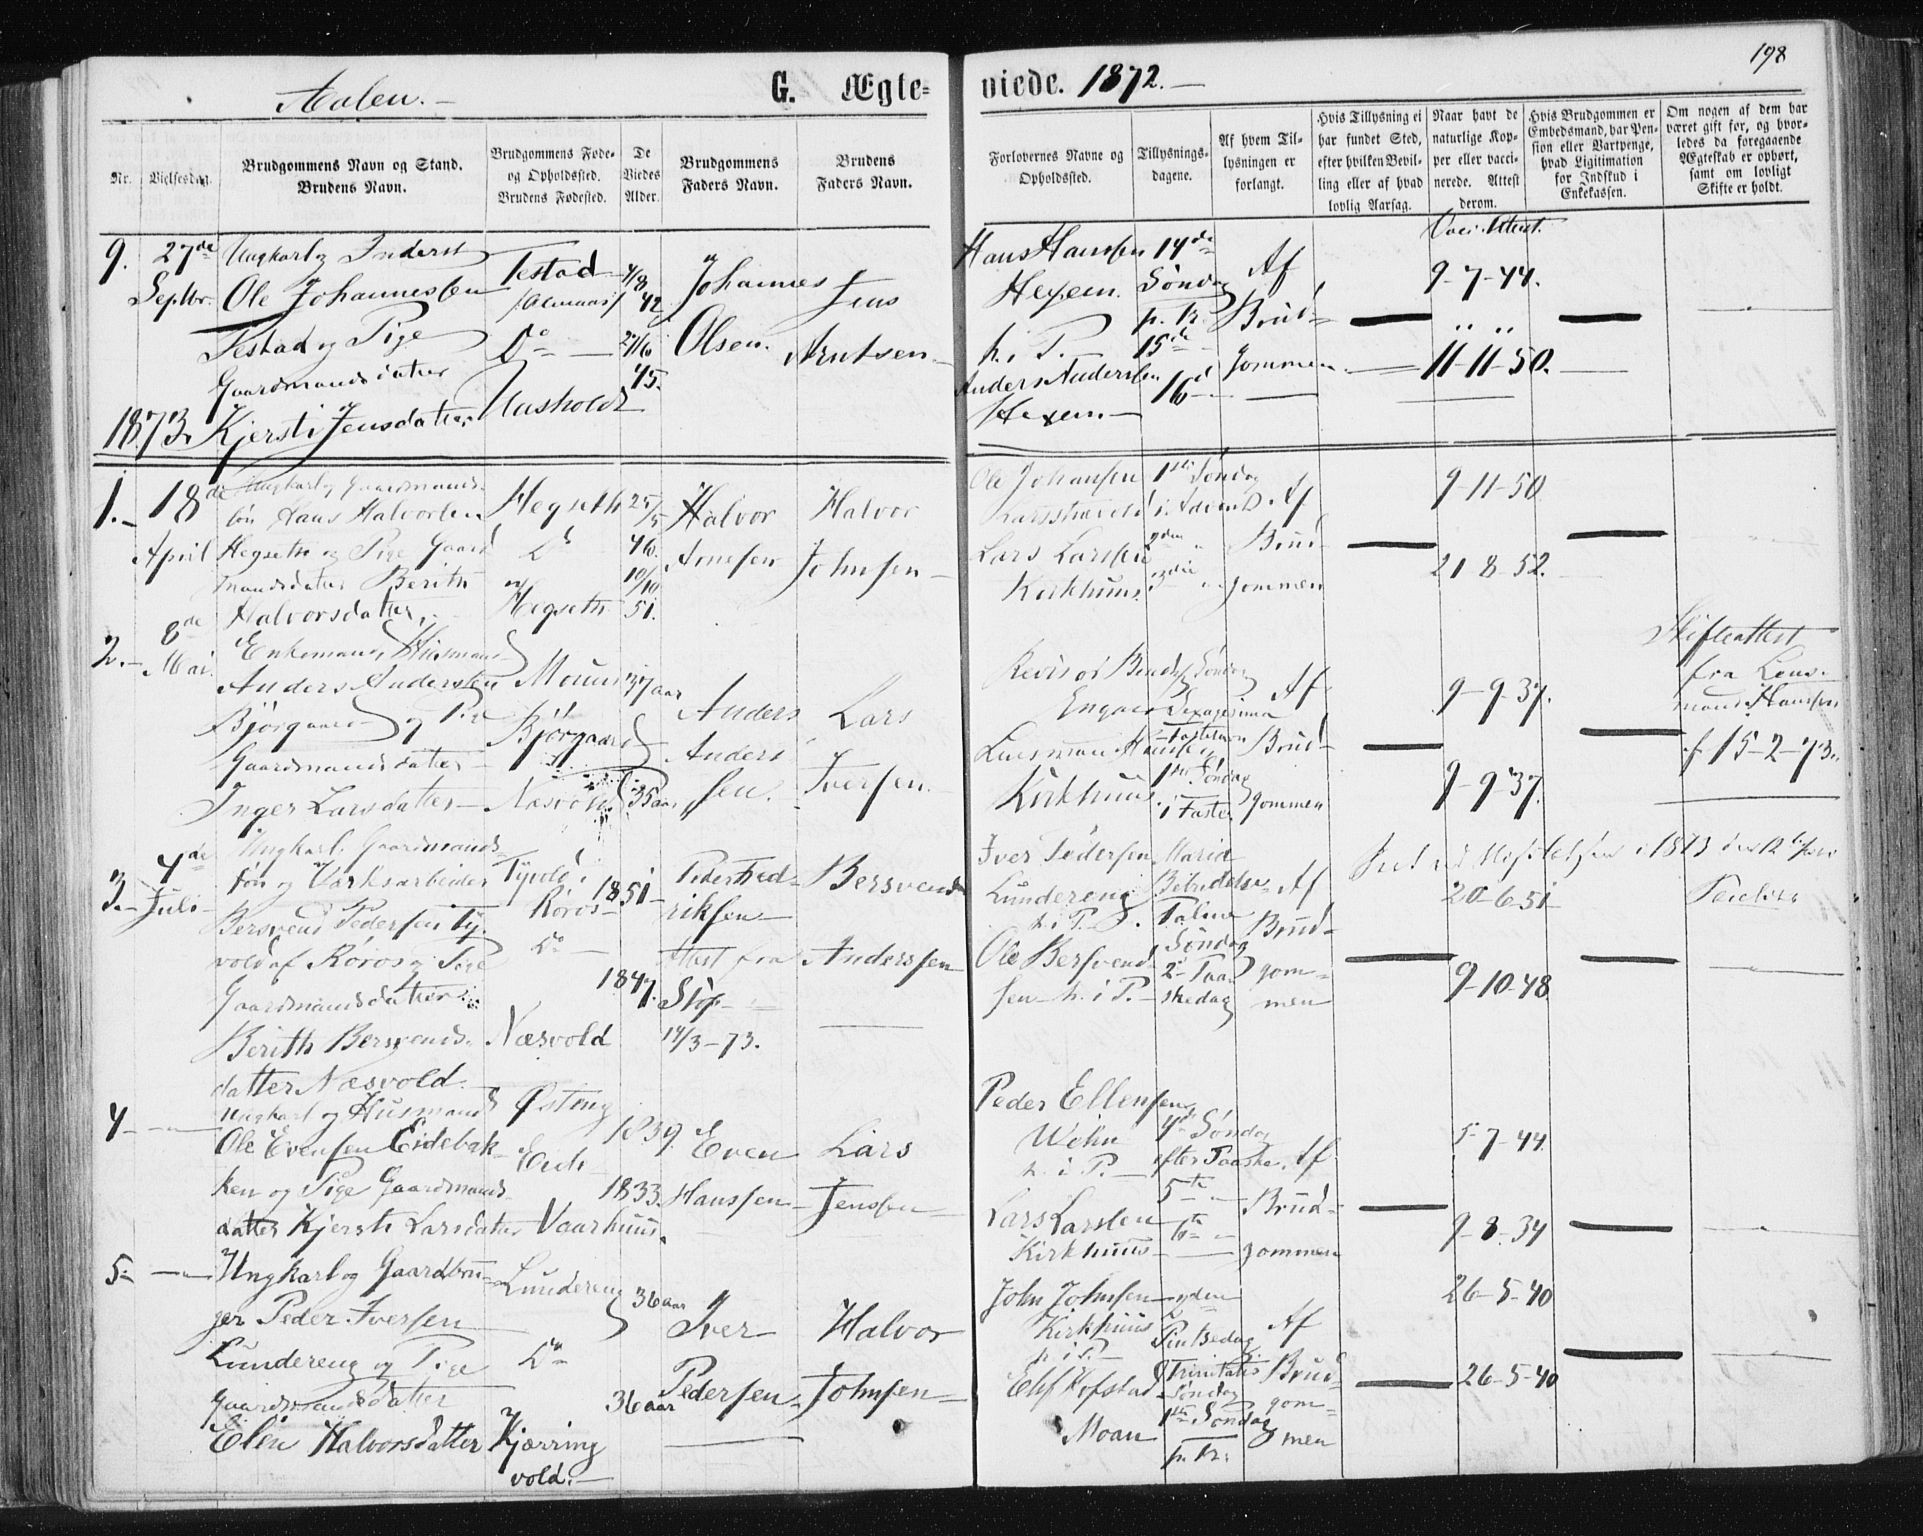 198
Aalen.
G. Ægte=
viede. 1872.
Nr.
Vielsesdag.
Brudgommens Navn og Stand.
Brudens Navn.
Brudgommens Føde=
og Opholdssted.
Brudens Fødested.
De
Viedes
Alder.
Brudgommens
Faders Navn.
Brudens
Faders Navn.
Forlovernes Navne og
Opholdssted.
Tillysnings=
dagene.
Af hvem Til=
lysningen er
forlangt.
Hvis Tillysning ei
har fundet Sted,
efter hvilken Bevil=
ling eller af hvad
lovlig Aarsag.
Naar havt de
naturlige Kop=
per eller vacci=
nerede. Attest
derom.
Hvis Brudgommen er
Embedsmand, har Pen=
sion eller Vartpenge,
hvad Ligitimation
for Indskud i
Enkekassen.
Om nogen af dem har
været gift før, og hvor=
ledes da foregaaende
Ægteskab er ophørt,
samt om lovligt
Skifte er holdt.
9.
27de
Septbr.
Ungkarl og Inderst
Ole Johannessen
Testad og Pige
Gaardmandsdatter
Kjersti Jensdatter
Testad
Do
Aasholdt
4/8
42
45.
Johannes
Olsen.
Jens
Arntsen
Hans Hanssen
Hexem.
h. i P.
Anders Anderssen
Hexem.
14de
Søndag
p. Tr.
15de
16d
Af
Brud=
gommen
Vacc. Attest.
9-7-44.
11-11-50.
1873.
1.
18de
April
Ungkarl og Gaardmands=
søn Hans Halvorsen
Hegseth og Pige Gaard
mandsdatter Berith
Halvorsdatter
Hegseth
Do
Hegseth
25/5
46.
10/10
51.
Halvor
Arnesen
Halvor
Johnsen
Ole Johansen
Lars Larssen
Kirkhuus.
1ste Søndag
i Advent
2den
3die
Af
Brud=
gommen
9-11-50
21-8-52.
2.
8de
Mai.
Enkemand, Husmand
Anders Anderssen
Bjørgaard og Pige
Gaardmandsdatter
Inger Larsdatter
Bjørgaard
Næsvold
37 aar
35 aar
Anders
Anders
sen.
Lars
Iversen.
Engaas
Kirkhuus
Søndag
Sexagesima
Fastelavn
1ste Søndag
i Faste
Af
Brud=
gommen
9-9-37.
9-9-37.
Skifteattest
fra Lens=
mand Hanssen
f 15-2-73.
3.
4de
Juli
Ungkarl Gaardmands
søn og Værksarbeider
Bersvend Pedersen Ty=
vold af Røros og Pige
Gaardmandsdatter
Berith Bersvends=
datter Næsvold.
Tyvold i
Røros
Do
Næsvold
1851
1847.
Peder Fred=
riksen
Attest fra
14/3-73.
Bersvend
Anderssen
Iver Pedersen
Lundereng
h. i P.
Ole Bersvend=
sen h. i P.
Maria
Bebudelse
Palme
Søndag
2 Paa
skedag
Af
Brud=
gom=
men
20-6-51
9-10-48
4
Ungkarl og Husmand
Ole Evensen Eidebak=
ken og Pige Gaardmands
datter Kjersti Larsdatter
Østeng
Vaarhuus.
1839.
1833.
Even
Hanssen
Lars
Jenssen
Peder Ellensen
h. i P.
Lars Larssen
Kirkhuus
4de Søndag
efter Paaske
5te
6te
Af
Brud=
gommen
5-7-44.
9-8-34
5
Ungkarl og Gaardbru=
ger Peder Iversen
Lundereng og Pige
Gaardmandsdatter
Elen Halvorsdatter
Lundereng
Do
Kjærring
vold.
36 aar
36 aar
Iver
Pedersen
Halvor
Johnsen
John Johnsen
Kirkhuus
h. i P.
Moan
Pintsedag
Trinitatis
Søndag
1ste Søndag
p. Tr.
Af
Brud=
gom=
men
26-5-40
26-5-40